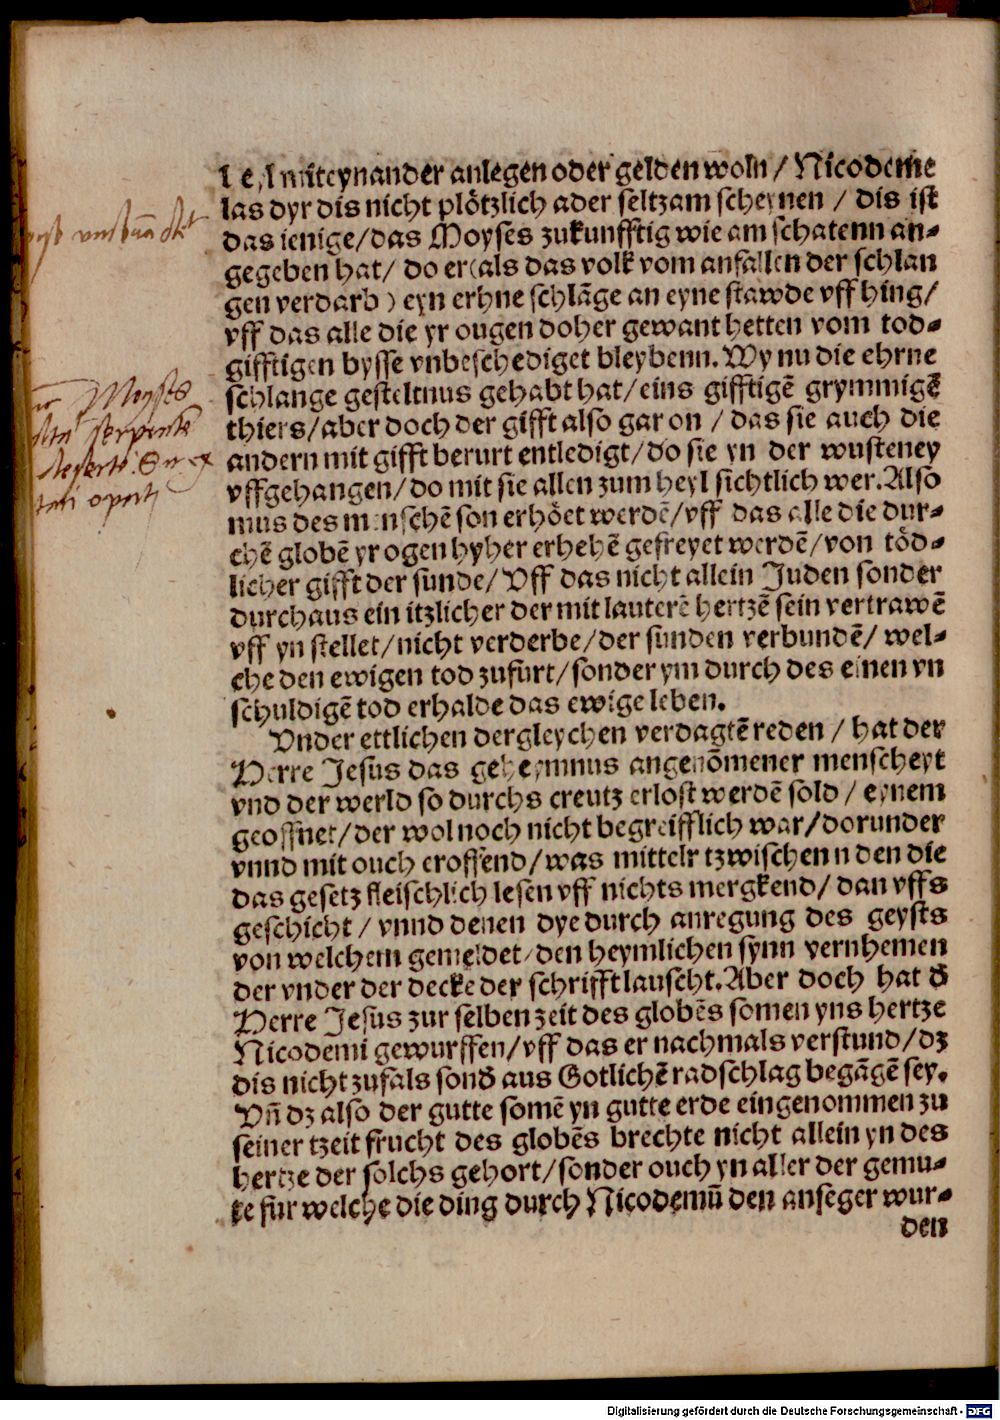 miteynander anlegen oder gelden woln / Nicodeme
las dyr dis nicht plötzlich ader seltzam scheynen / dis ist
das ienige/das Moyses zukunfftig wie am schatenn an-
gegeben hat/ do er(als das volk vom anfallen der schlan
gen verdarb ) eyn erhne schlãge an eyne stawde vff hing/
vff das alle die yr ougen doher gewant hetten vom tod-
gifftigen bysse vnbeschediget bleybenn. Wy nu die ehrne
schlange gesteltnus gehabt hat/eins gifftigẽ grymmigẽ
thiers/aber doch der gifft also gar on / das sie auch die
andern mit gifft berurt entledigt/do sie yn der wusteney
vffgehangen/do mit sie allen zum heyl sichtlich wer. Also
mus des menschẽ son erhöet werdẽ/vff das alle die dur-
chẽ globẽ yr ogen hyher erhehẽ gefreyet werdẽ/von töd-
licher gifft der sunde/ Vff das nicht allein Juden sonder
durchaus ein itzlicher der mit lauterẽ hertzẽ sein vertrawẽ
vff yn stellet/nicht verderbe/der sunden verbundẽ/ wel-
che den ewigen tod zufurt/sonder ym durch des einen vn
schuldigẽ tod erhalde das ewige leben.
Vnder ettlichen dergleychen verdagtẽ reden / hat der
Herre Jesus das geheymnus angenõmener menscheyt
vnd der werld so durchs creutz erlost werdẽ sold / eynem
geoffnet/der wol noch nicht begreifflich war/dorunder
vnnd mit ouch eroffend/was mittelr tzwischenn den die
das gesetz fleischlich lesen vff nichts mergkend/ dan vffs
geschicht / vnnd denen dye durch anregung des geysts
von welchem gemeldet/den heymlichen synn vernhemen
der vnder der decke der schrifft lauscht. Aber doch hat d̃
Herre Jesus zur selben zeit des globẽs somen yns hertze
Nicodemi gewurffen/vff das er nachmals verstund/dz
dis nicht zufals sond̃ aus Gotlichẽ radschlag begãgẽ sey.
Vñ dz also der gutte somẽ yn gutte erde eingenommen zu
seiner tzeit frucht des globẽs brechte nicht allein yn des
hertze der solchs gehort/sonder ouch yn aller der gemu-
te für welche die ding durch Nicodemũ den anseger wur-
den
Moyses
serpente
Digitalisierung gefördert durch die Deutsche Forschungsgemeinschaft - DFG